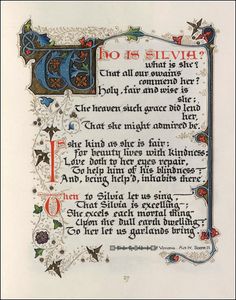 WHO IS SILVIA?
what is she?
That all our swains
commend her?
Holy, fair and wise is
she;
The heaven such grace did lend
her,
That she might admired be.
Is she kind as she is fair?
For beauty lives with kindness:
Love doth to her eyes repair,
To help him of his blindness;
And, being help'd, inhabits there.
Then to Silvia let us sing,
That Silvia is excelling;
She excels each mortal thing
Upon the dull earth dwelling:
To her let us garlands bring.
Verona. Act IV. Scene II.
27